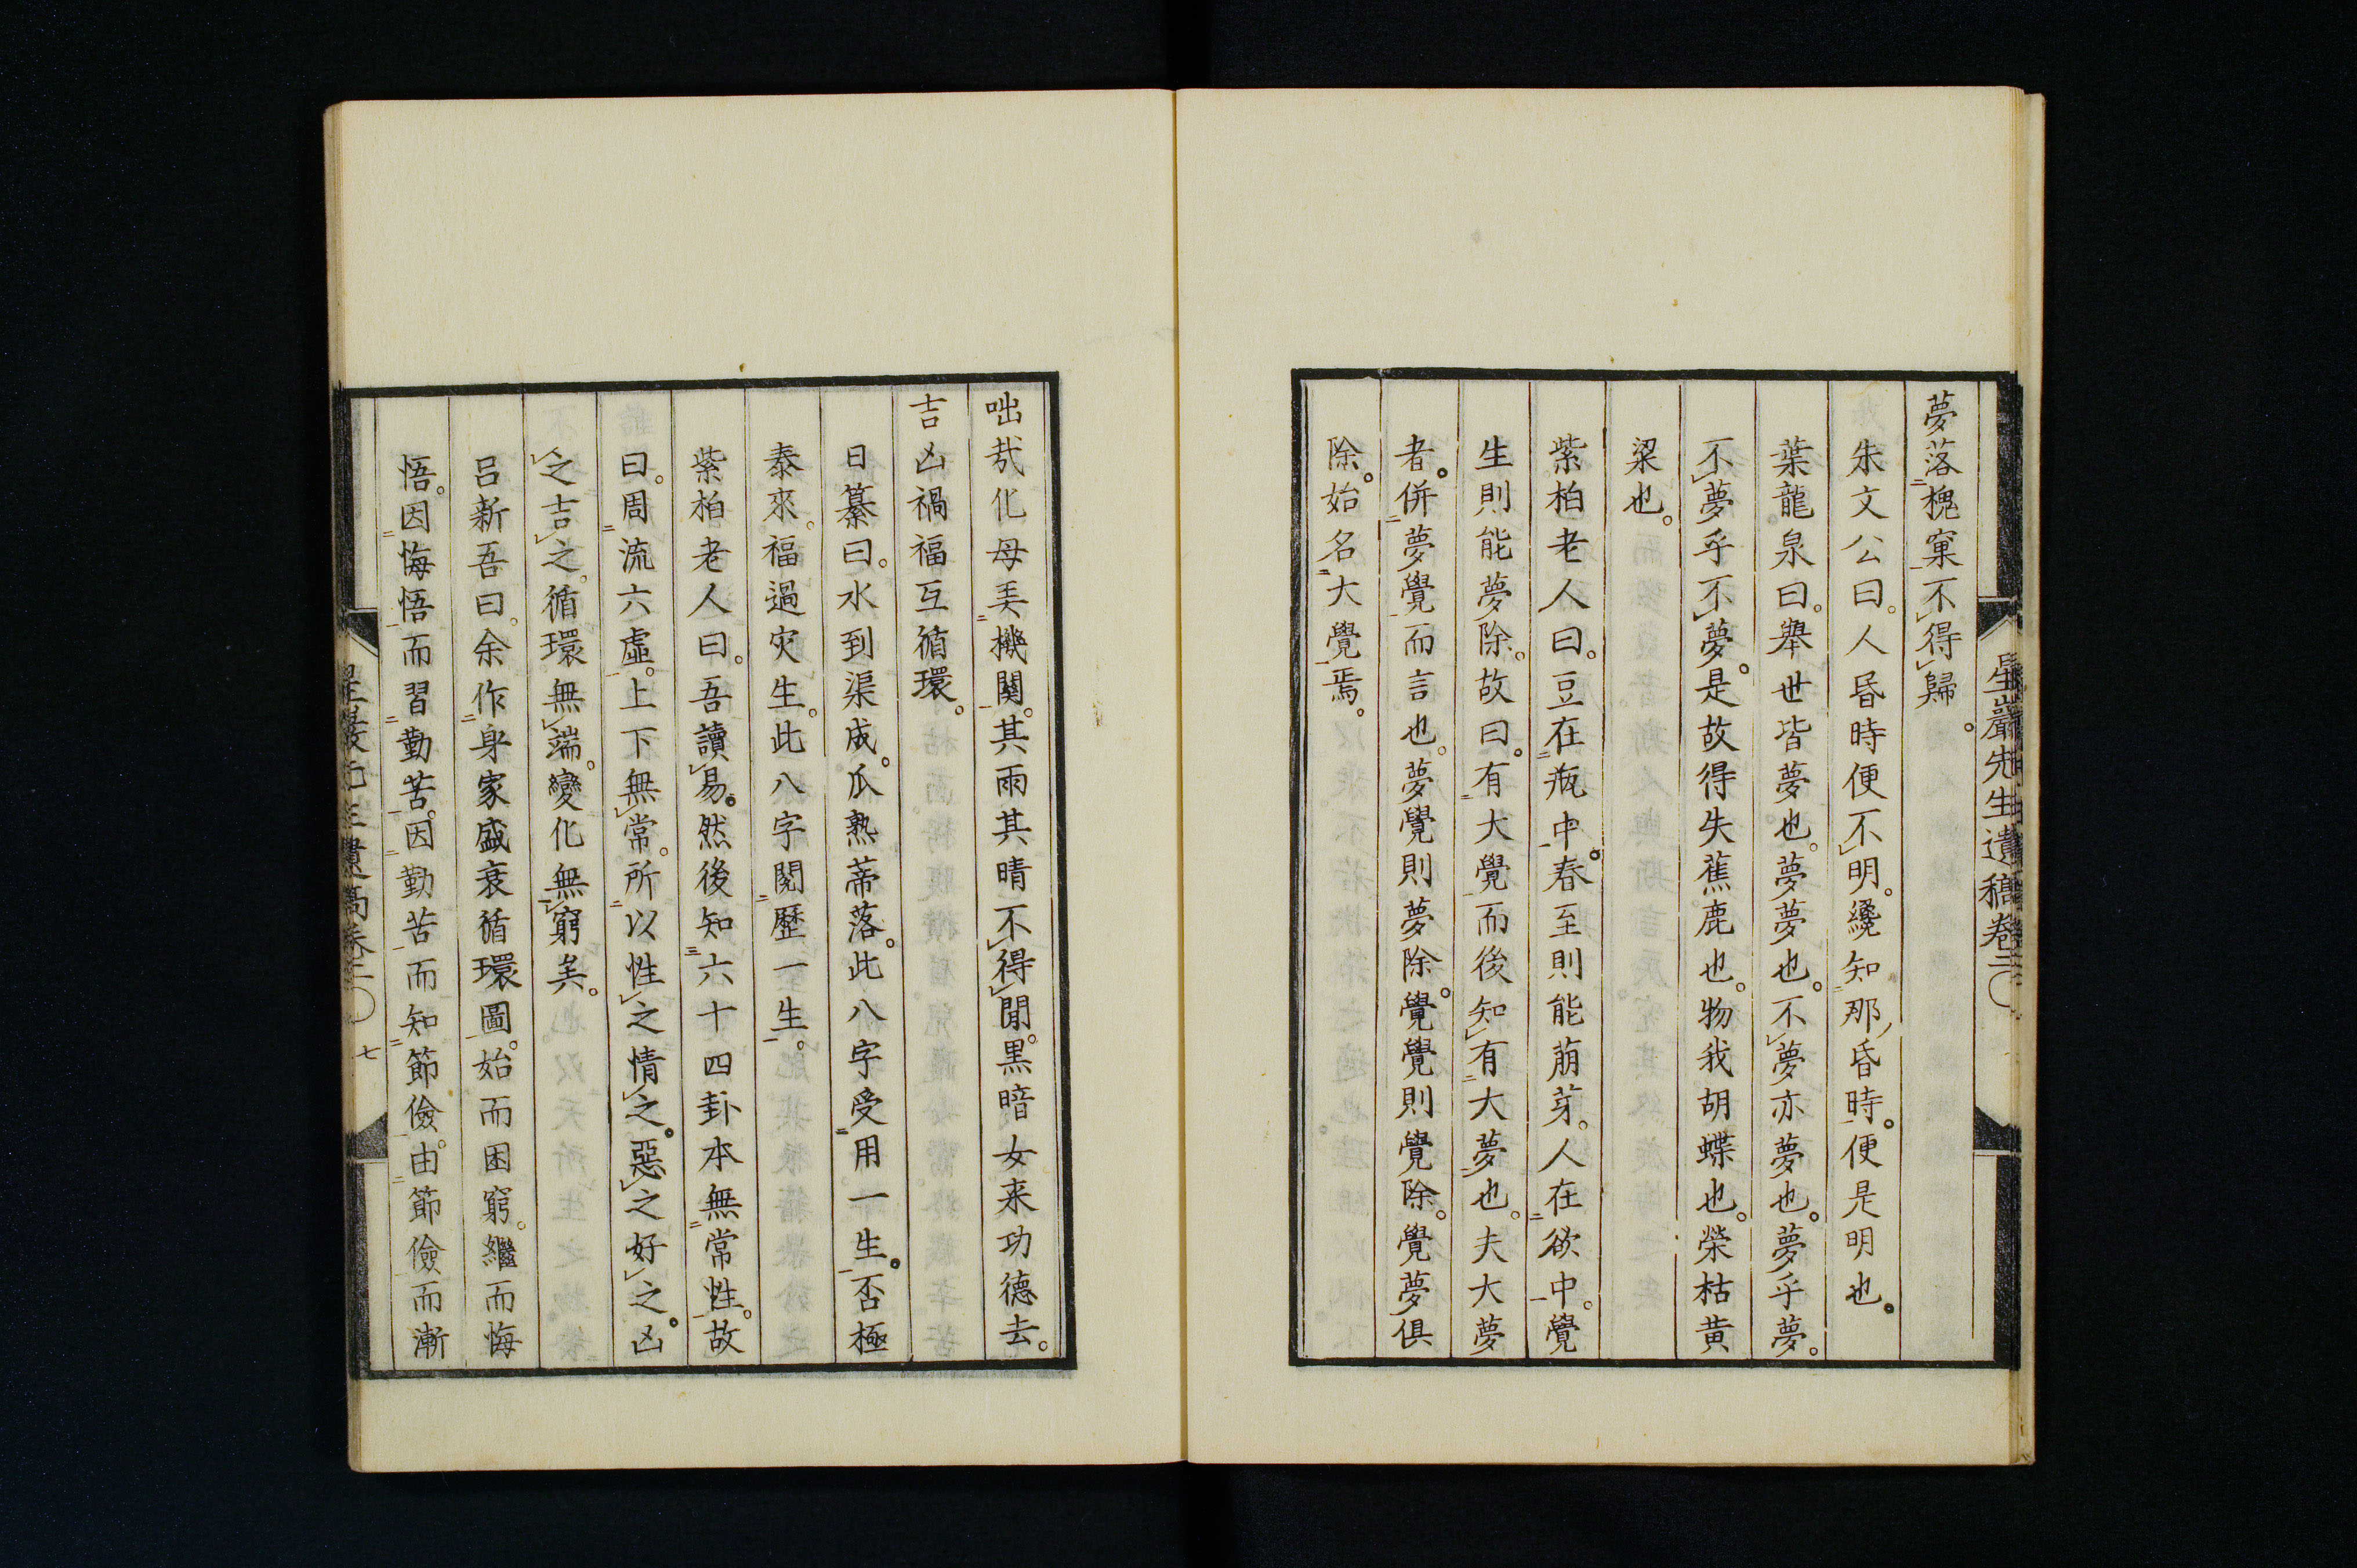 星巖先生遺稿卷二
夢落槐窠不得歸。
朱文公曰。人昏時便不明。纔知那昏時。便是明也。
葉龍泉曰。舉世皆夢也。夢夢也。不夢亦夢也。夢乎夢。
不夢乎不夢。是故得失蕉鹿也。物我胡蝶也。榮枯黄
粱也。
紫柏老人曰。豆在瓶中。春至則能萠芽。人在欲中。覺
生則能夢除。故曰。有大覺而後知有大夢也。夫大夢
者。併夢覺而言也。夢覺則夢除。覺覺則覺除。覺夢俱
除。始名大覺焉。
咄哉化母美機關。其雨其晴不得聞。黒暗女来功德去。
吉凶禍福互循環。
日纂曰。水到渠成。瓜熟蒂落。此八字受用一生。否極
泰來。福過灾生。此八字閱歷一生。
紫柏老人曰。吾讀易。然後知六十四卦本無常性。故
曰。周流六虛。上下無常。所以性之情之。惡之好之。凶
之吉之。循環無端。變化無窮矣。
呂新吾曰。余作身家盛衰循環圖。始而困窮。繼而悔
悟。因悔悟而習勤苦。因勤苦而知節儉。由節儉而漸
七